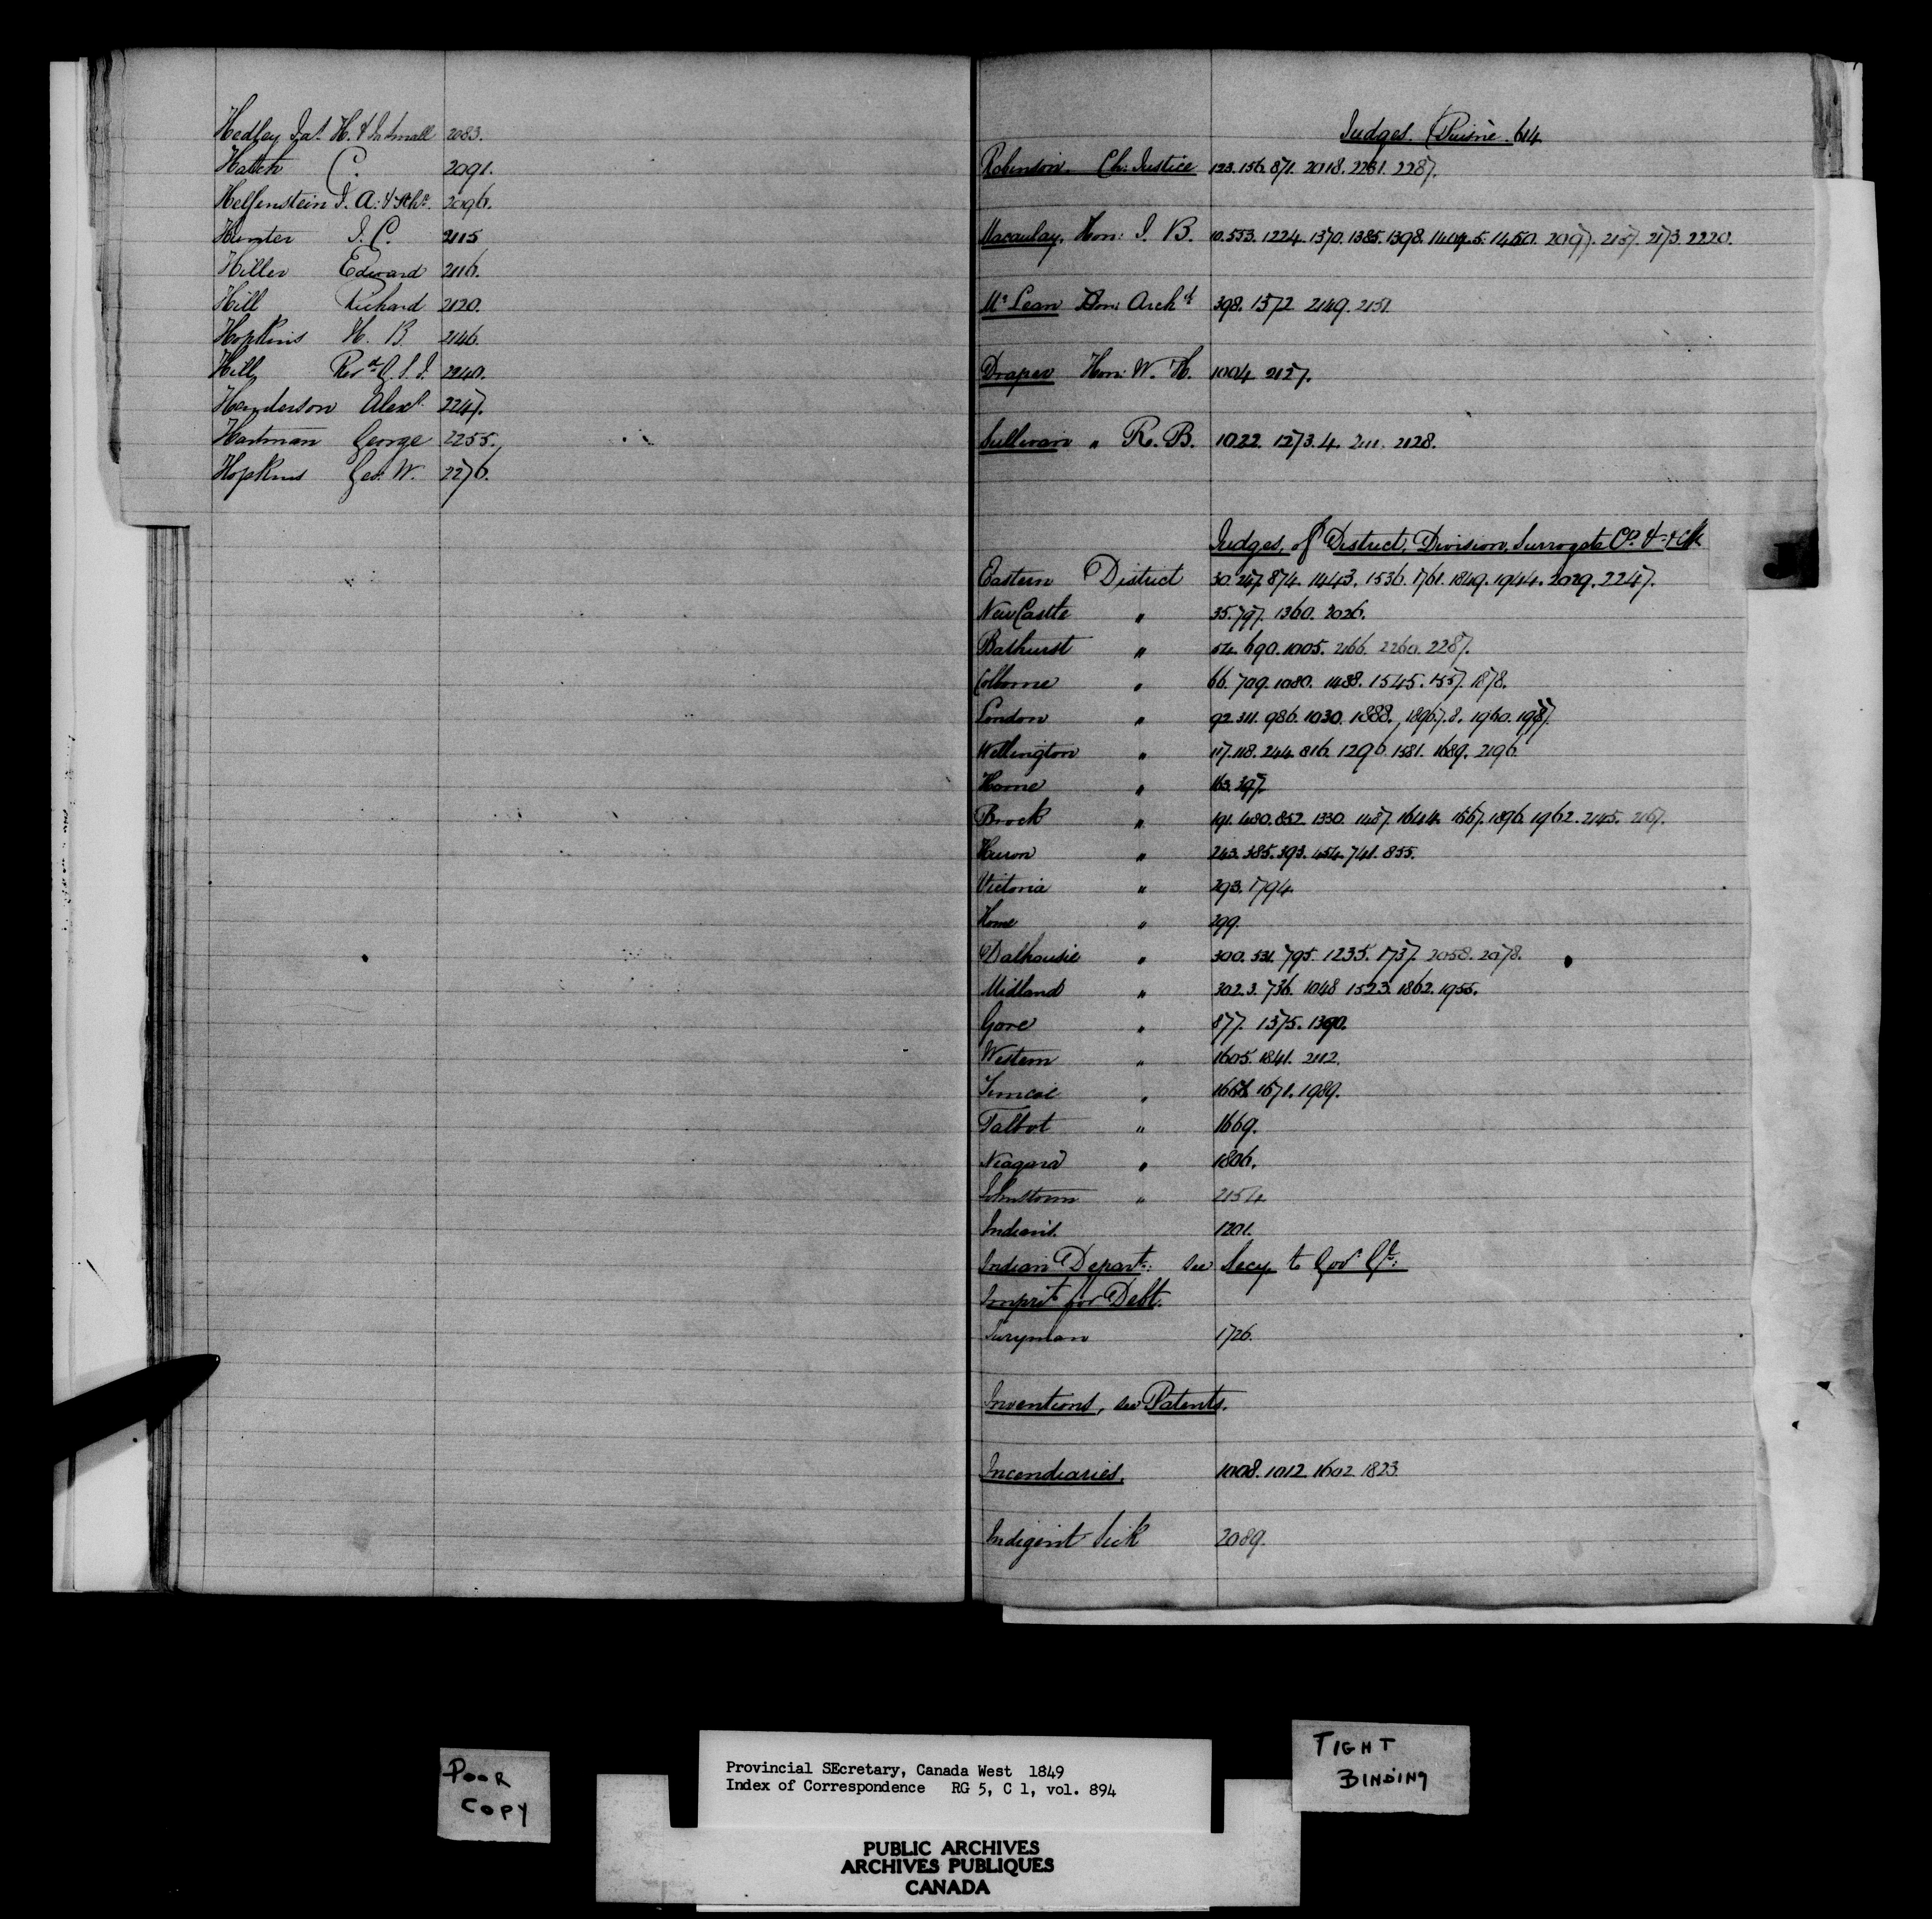 Hedley Jas. H. & Jn Small 2083.
Hatch C. 2091.
Helfenstein J. A. & 2096.
Hunter J. C. 2115
Hiller Edward 2116.
Hill Richard 2120.
Hopkins H. B. 2146.
Hill Revd. G. S. J. 2240.
Henderson Alexr. 2247.
Hartman George 2255.
Hopkins Geo. W. 2276.
Judges. Puisnè. 614
Robinson. Ch: Justice 123. 156. 871. 2018. 2261. 2287.
Macaulay, Hon: J. B. 10. 553. 1224. 1370. 1385. 1398. 1404. 5. 1450. 2097. 2137. 2173. 2220.
McLean Hon: Archd 398. 1372. 2149. 2151.
Draper Hon: W. H. 1004. 2127.
Sullivan " R. B. 1022. 1273. 4. 2111. 2128.
Judges of District, Division, Surrogate Ct. &
Eastern District 30. 247. 874. 1443. 1536. 1761. 1849. 1944. 2029. 2247.
NewCastle " 35. 797. 1360. 2026.
Bathurst " 54. 690. 1005. 2166. 2260. 2287.
Colborne " 66. 709. 1080. 1488. 1545. 1557. 1878.
London " 92. 311. 986. 1030. 1888. 1896. 7. 8. 1960. 1987.
Wellington " 117. 118. 244. 816. 1296. 1581. 1689. 2196.
Home " 163. 397.
Brock " 191. 480. 852. 1330. 1487. 1644. 1667. 1896. 1962. 2145. 2167.
Huron " 243. 385. 393. 454. 741. 855.
Victoria " 293. 1794.
Home " 299.
Dalhousie " 300. 531. 795. 1235. 1737. 2058. 2078.
Midland " 302. 3. 736. 1048. 1523. 1862. 1955.
Gore " 877. 1375. 1390.
Western " 1605. 1841. 2112.
Simcoe " 1668. 1671. 1989.
Talbot " 1669.
Niagara " 1806.
Johnstown " 2154.
Indians. 1201.
Indian Depart: see Secy. to Govr. Gl:
Imprist. for Debt.
Juryman 1726.
Inventions, see Patents.
Incendiaries, 1008. 1012. 1602. 1823.
Indigent Sick 2089.
J
POOR
COPY
Provincial SEcretary, Canada West 1849
Index of Correspondence RG 5, C 1, vol. 894
PUBLIC ARCHIVES
ARCHIVES PUBLIQUES
CANADA
TIGHT
BINDING